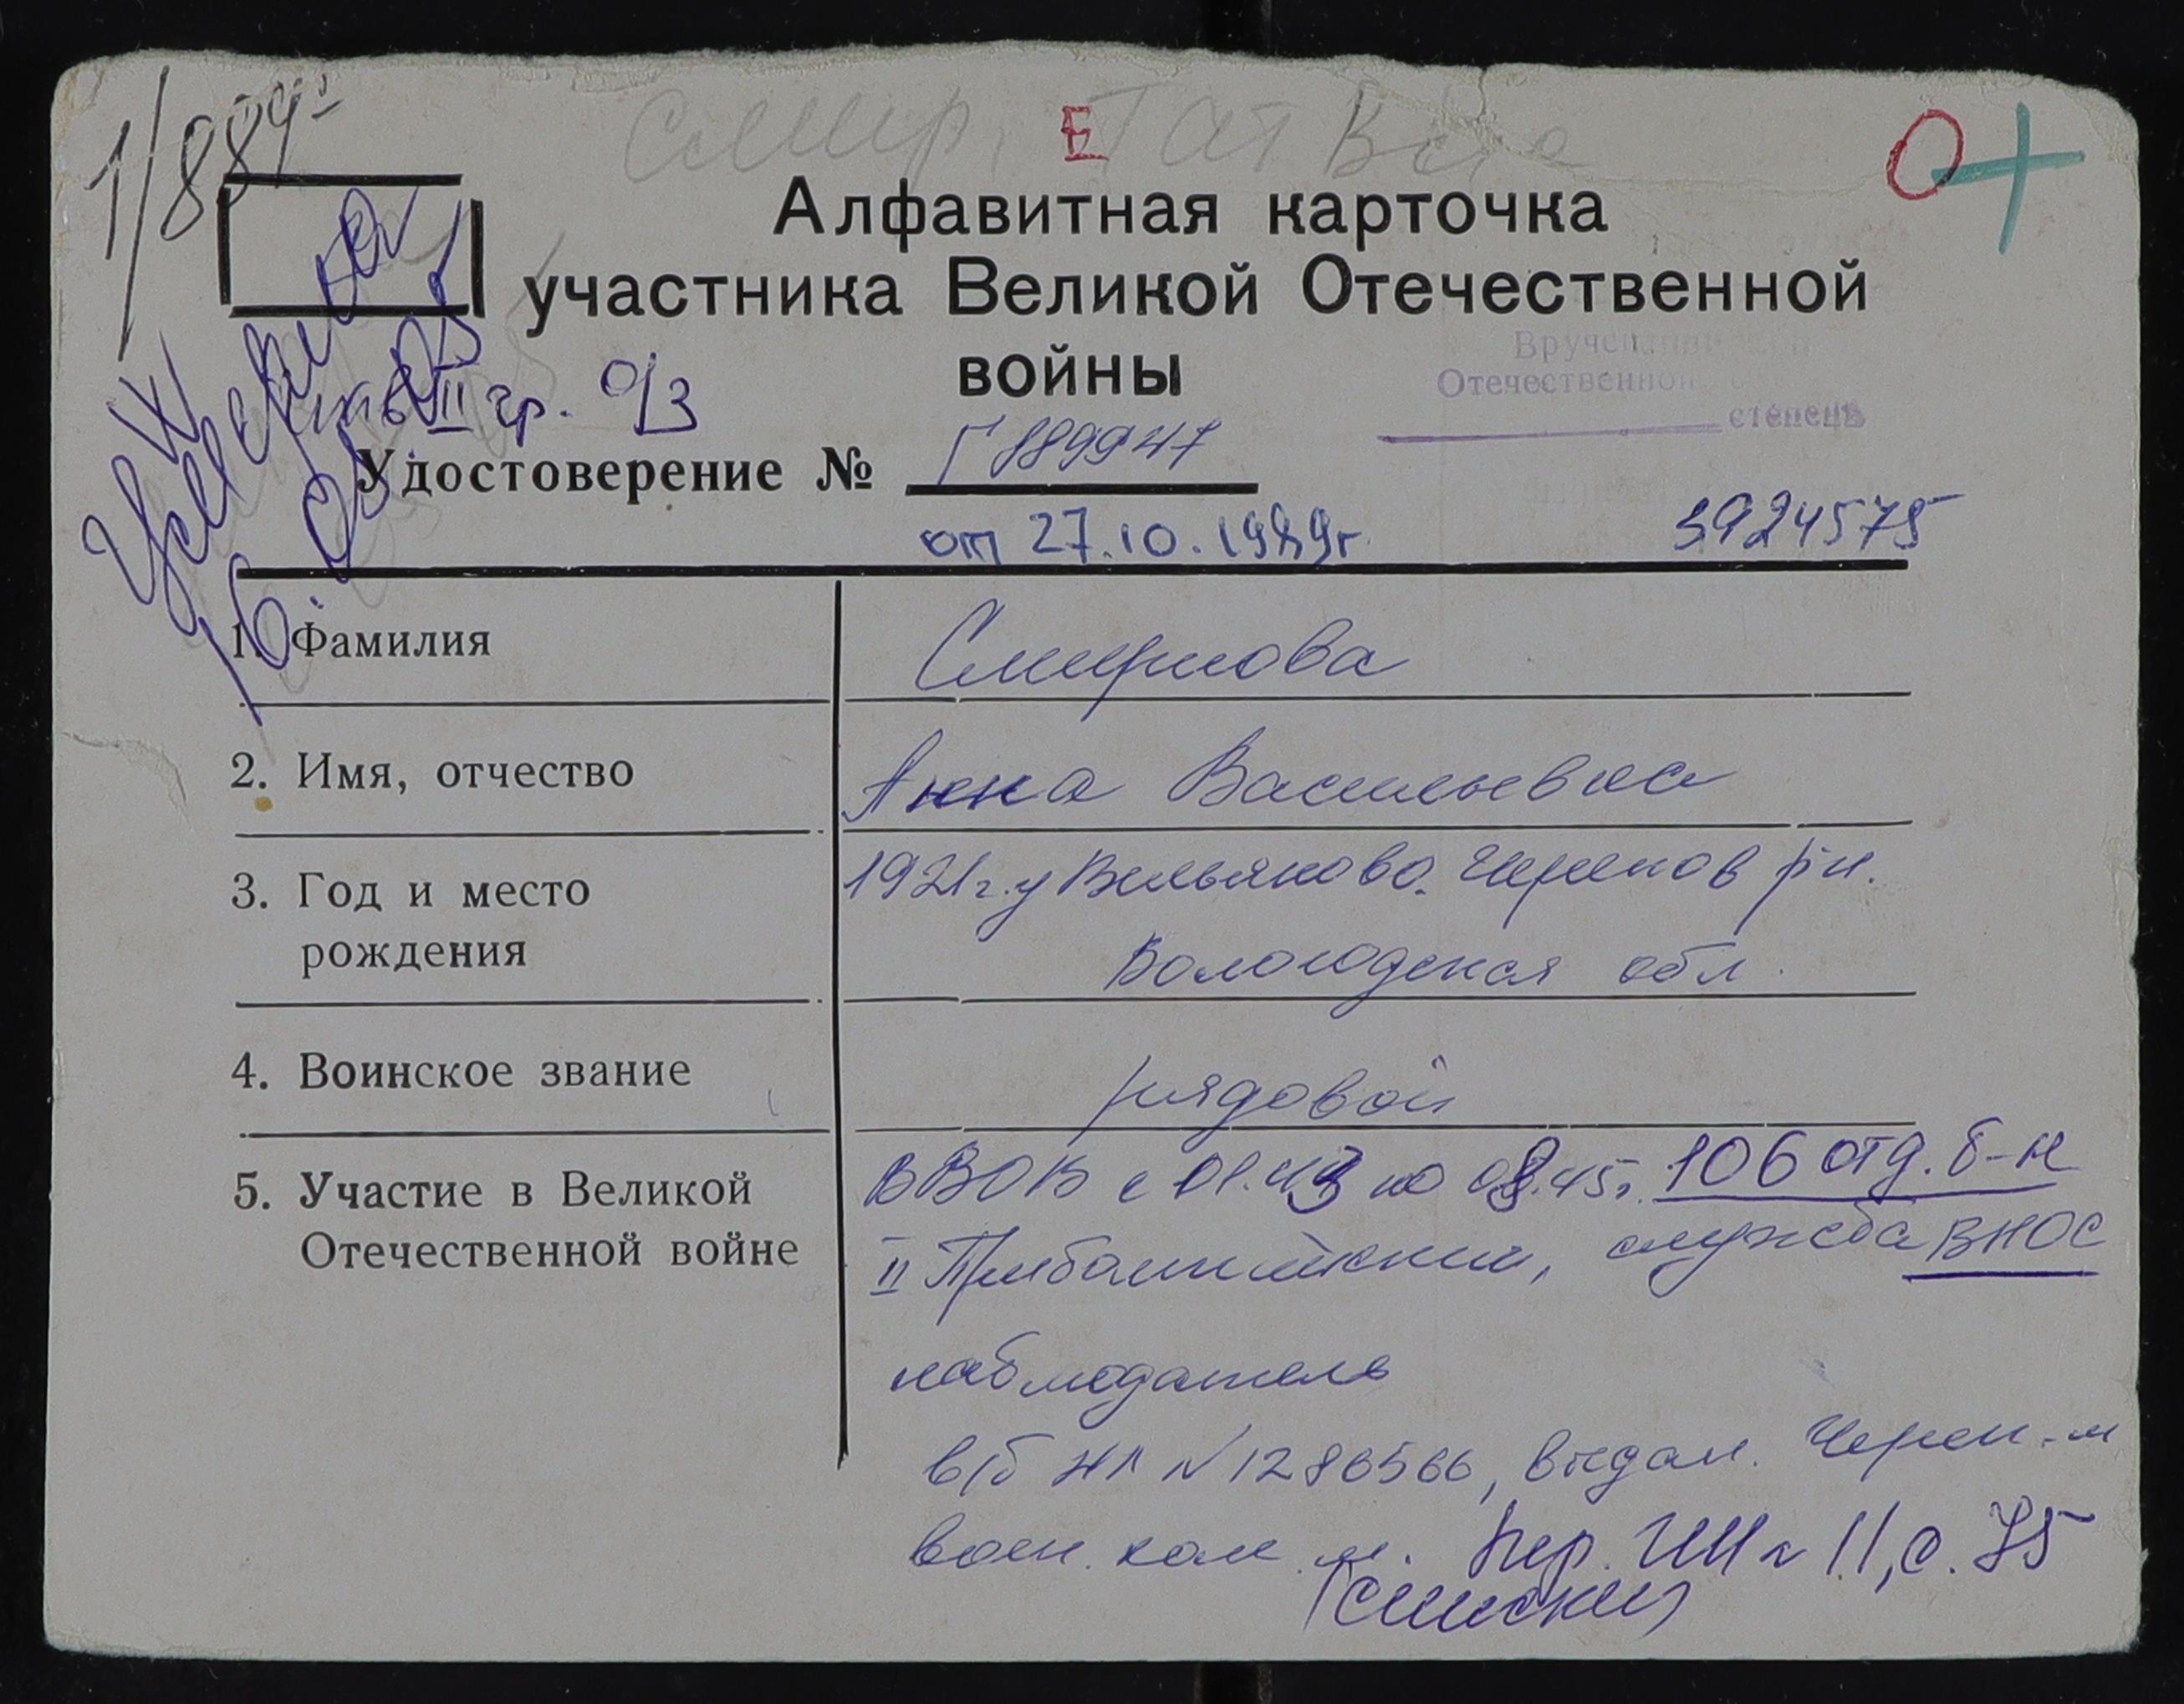 1/889
Смир. Тат Вас
Е
О+
Алфавитная карточка
участника Великой Отечественной
войны
Вручен
Отечественной
степень
инв. II гр. О/З
Удостоверение № Г 889947
от 27.10.1989г.
3924575
1. Фамилия Смирнова
2. Имя, отчество Анна Васильевна
3. Год и место 1921г. Вельяново. Черепов р-н.
рождения Вологодская обл.
4. Воинское звание рядовой
5. Участие в Великой В ВОВ с 01.43 по 08.45г. 106 отд. б-н
Отечественной войне II Прибалтийский, служба ВНОС
наблюдатель
в/б НЛ №1286566, выдан. Череп.-м
воен. ком-м.
11, с. 75
(списки)